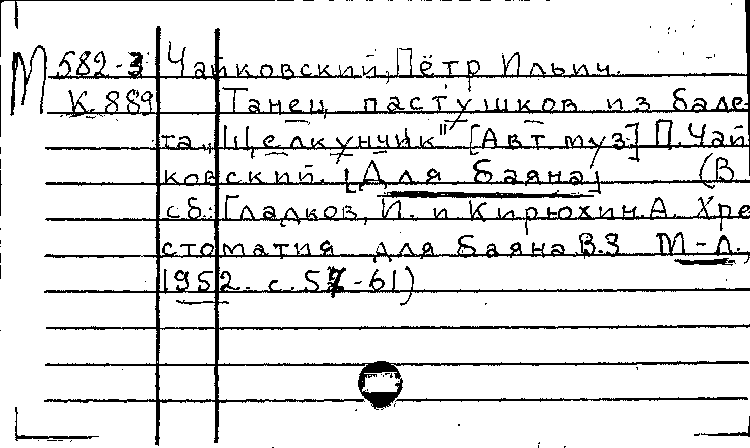 М 582-3 Чайковский, Пётр Ильич.
К.889 Танец пастушков из бале
та „Щелкунчик" [Авт муз] П. Чай
ковский. [Для баяна] (В
сб: Гладков, И. и Кирюхин. А. Хре
стоматия для баяна В.3 М-Л.,
1952. с. 57-61)